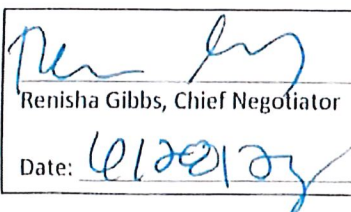 Renisha Gibbs, Chief Negotiator
Date: